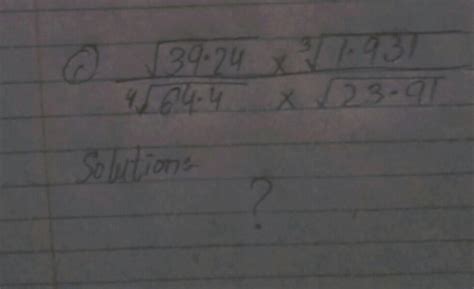 c) √39.24 × ³√1.931
⁴√64.4 × √23.91
Solutions
?